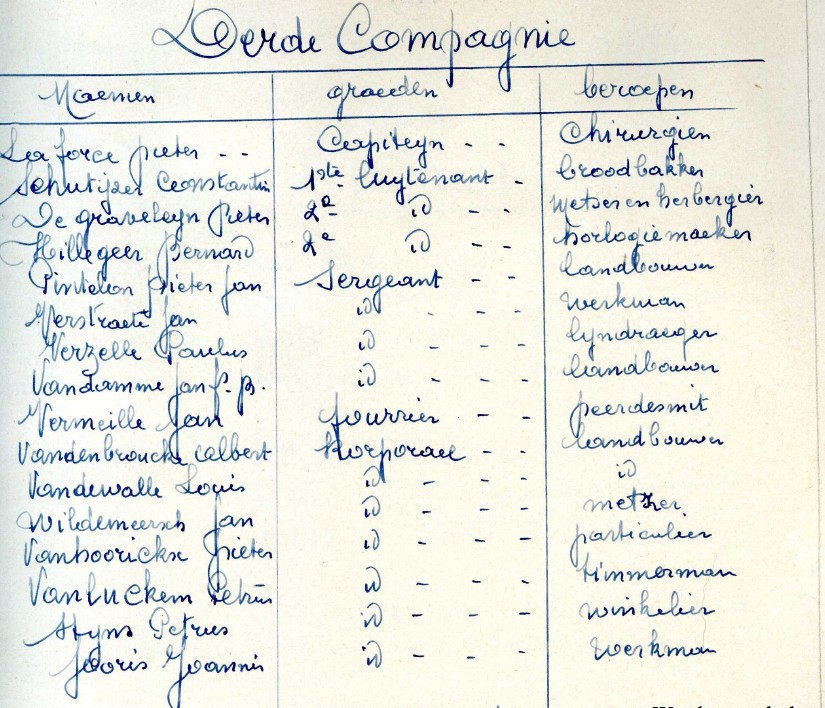 Derde Compagnie
Naemen graeden beroepen
La force pieter - - Capiteyn - - Chirurgien
Schutijzer Constantin 1ste luytenant - broodbakker
De graveleyn Pieter 2e id - - metser en herbergier
Hillegeer Bernard 2e id - - horlogiemaeker
Pintelon Pieter Jan Sergeant - - landbouwer
Verstraete Jan id - - - werkman
Verzelle Paulus id - - - lyndraeger
Vandamme Jan Fs. B. id - - - landbouwer
Vermeille Jan fourrier - - peerdesmit
Vandenbroucke Albert Korporael - - landbouwer
Vandewalle Louis id - - - id
Wildemeersch Jan id - - - metser
Vanhoorickx Pieter id - - - particulier
Vanluckem Petrus id - - - timmerman
Styns Petrus id - - - winkelier
Jooris Joannis id - - - werkman